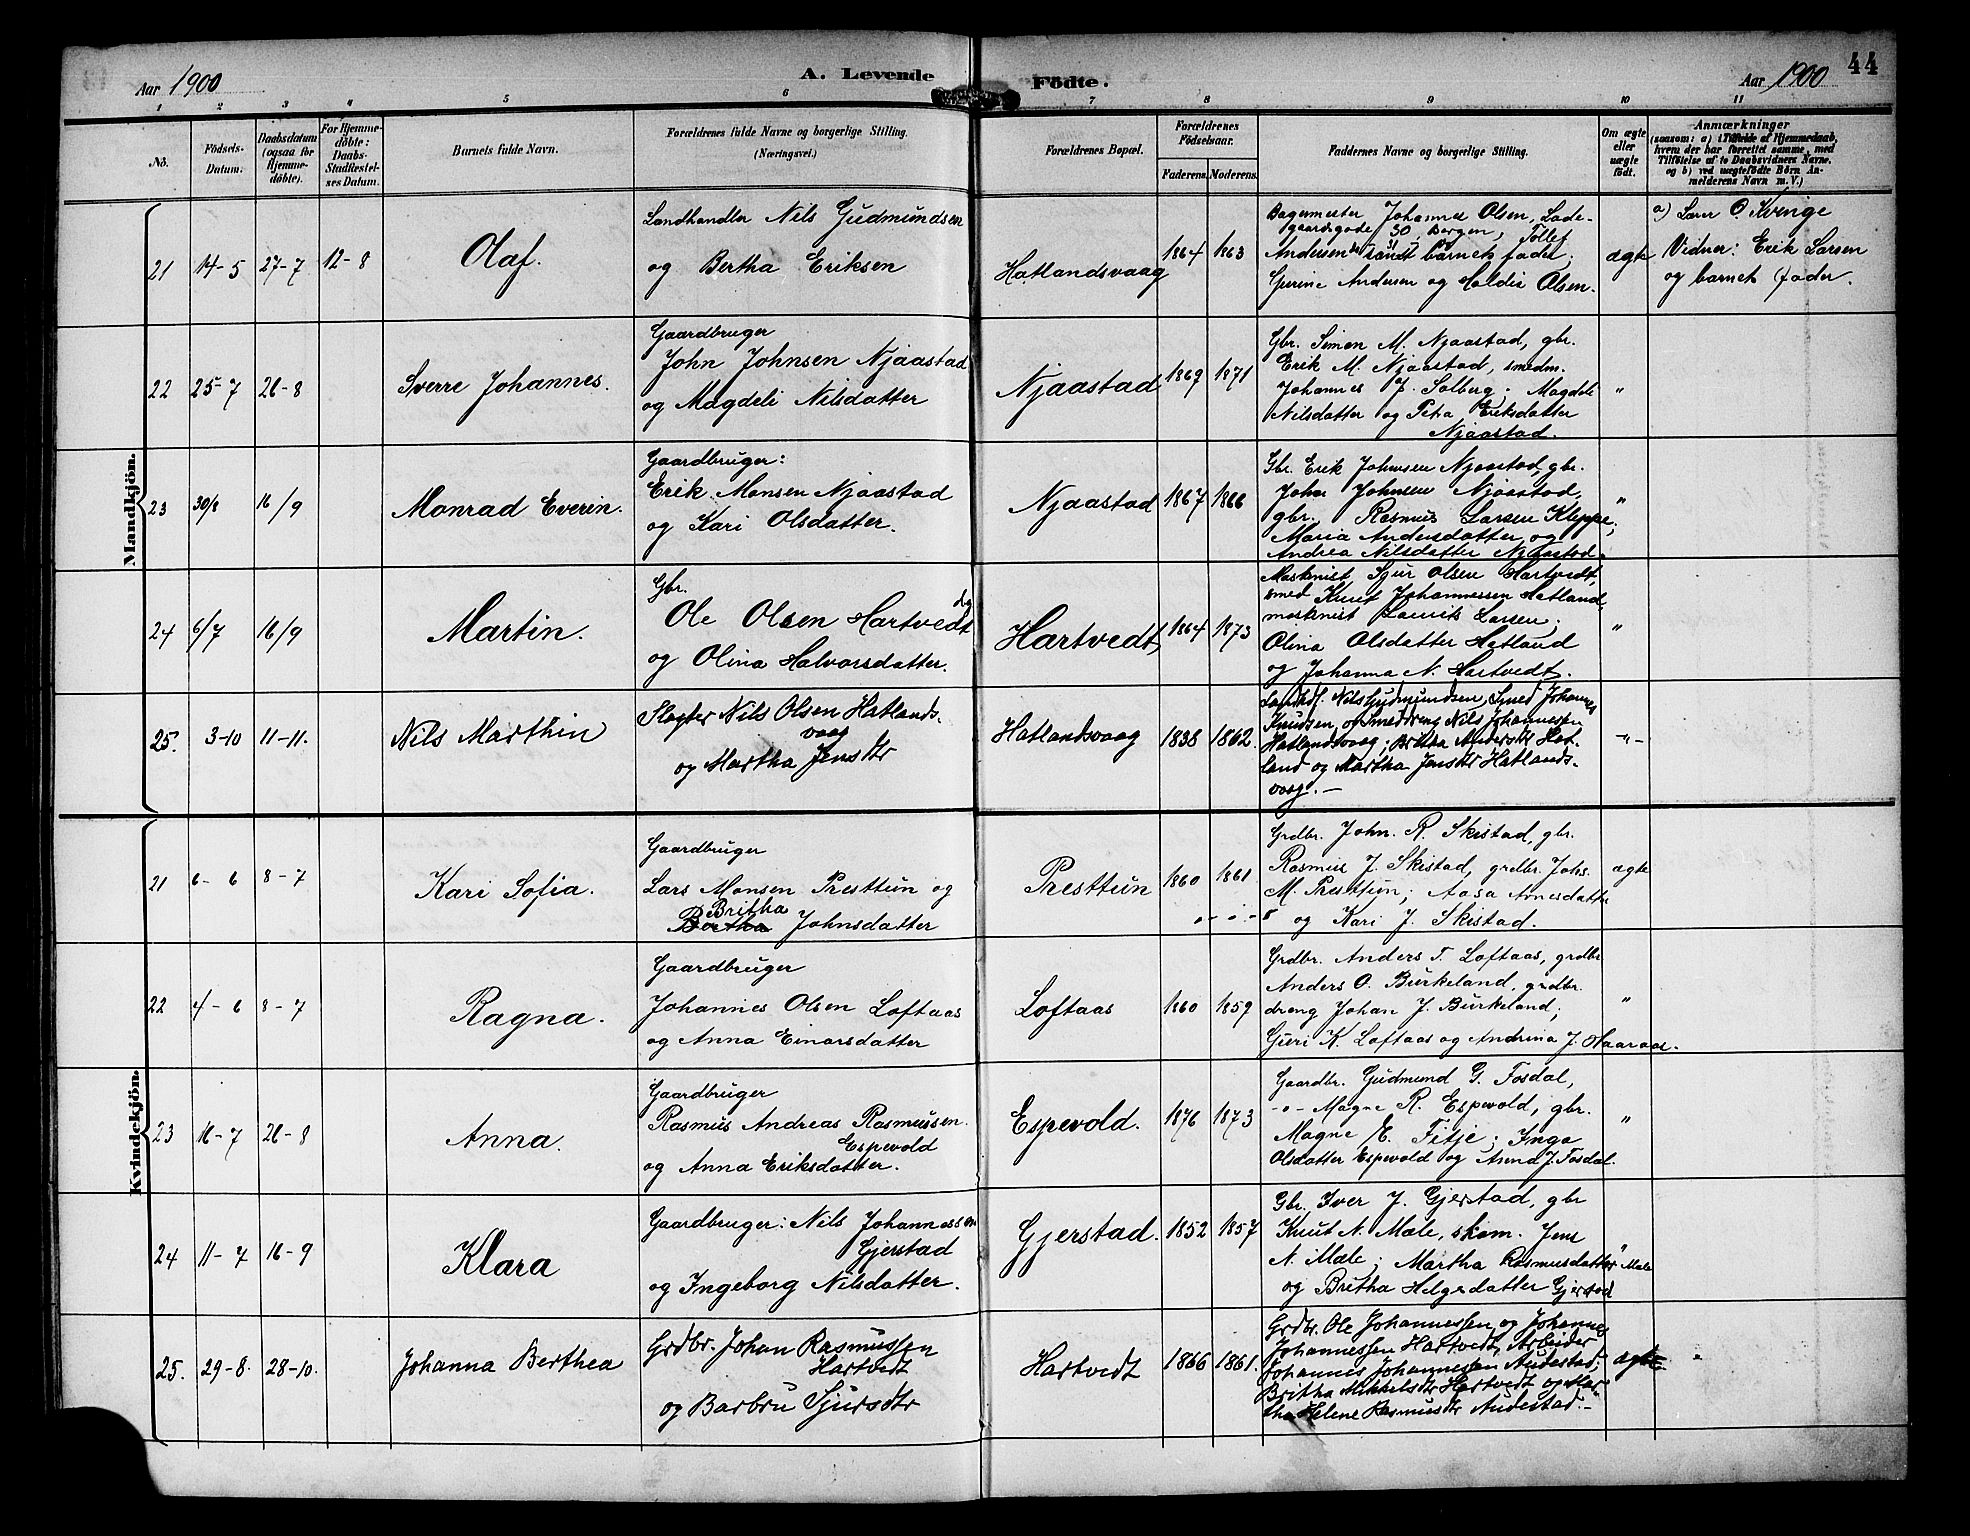 Aar 1900
A. Levende Födte.
Aar 1900
44
1 2 3 4 5 6 7 8 9 10 11
No.
Födsels-
Datum.
Daabsdatum
(ogsaa for
Hjemme-
döbte).
For Hjemme-
döbte:
Daabs-
Stadfæstel-
ses Datum.
Barnets fulde Navn.
Forældrenes fulde Navne og borgerlige Stilling.
(Næringsvei.)
Forældrenes Bopæl.
Forældrenes
Födselsaar.
Faderens. Moderens.
Faddernes Navne og borgerlige Stilling.
Om ægte
eller
uægte
födt.
Anmærkninger
(saasom: a) i Tilfælde af Hjemmedaab,
hvem der har forrettet samme, med
Tilföielse af to Daabsvidners Navne,
og b) ved uægtefödte Börn An-
melderens Navn m. V.)
Mandkjön.
21 14-5 27-7 12-8 Olaf.
Landhandler Nils Gudmundsen
og Bertha Eriksen
Hatlandsvaag 1864 1863
Bagermester Johannes Olsen, Lade-
gaardsgade 30, Bergen, Tollef
Andersen samt barnets fader;
Gurine Andersen og Haldis Olsen.
ægte
a) Lærer O. Kvinge
Vidner: Erik Larsen
og barnets fader.
22 25-7 26-8 Sverre Johannes.
Gaardbruger
John Johnsen Njaastad
og Magdeli Nilsdatter
Njaastad 1869 1871
Gbr. Simon M. Njaastad, gbr.
Erik M. Njaastad, smedm.
Johannes J. Solberg; Magdeli
Nilsdatter og Petra Eriksdatter
Njaastad.
"
23 30/8 16/9 Monrad Everin.
Gaardbruger:
Erik Monsen Njaastad
og Kari Olsdatter.
Njaastad 1867 1866
Gbr. Erik Johnsen Njaastad, gbr.
John Johnsen Njaastad,
gbr. Rasmus Larsen Kleppe;
Maria Andersdatter og
Andrea Nilsdatter Njaastad.
"
24 6/7 16/9 Martin.
Gbr.
Ole Olsen Hartvedt
og Olina Halvorsdatter.
Hartvedt 1864 1873
Maskinist Sjur Olsen Hartvedt,
smed Knut Johannessen Hetland,
maskinist Laurits Larsen;
Olina Olsdatter Hetland
og Johanna N. Hartvedt.
"
25. 3-10 11-11. Nils Marthin
Slagter Nils Olsen Hatlands-
vaag
og Martha Jensdtr
Hatlandsvaag 1838 1862.
Landhdl. Nils Gudmundsen, Smed Johannes
Knudsen, og Smeddreng Nils Johannessen
Hatlandsvaag; Britha Andersdtr Hat-
land og Martha Jensdtr Hatlands-
vaag. -
-"-
Kvindekjön.
21 6-6 8-7 Kari Sofia.
Gaardbruger
Lars Monsen Presttun og
Britha
Bertha Johnsdatter
Presttun 1860 1861
Grdbr. John. R. Skistad, gbr.
Rasmus J. Skistad, grdbr. Johs.
M. Presttun; Aasa Arnesdatter
og Kari J. Skistad.
ægte
22 4-6 8-7 Ragna.
Gaardbruger
Johannes Olsen Loftaas
og Anna Einarsdatter
Loftaas 1860 1859
Grdbr. Anders T. Loftaas, grdbr
Anders O. Burkeland, grdbr.
dreng Johan J. Burkeland;
Guri K. Loftaas og Andrina J. Haaraas.
"
23 16-7 26-8 Anna.
Gaardbruger
Rasmus Andreas Rasmussen
Espevold
og Anna Eriksdatter.
Espevold. 1876 1873
Gaardbr. Gudmund G. Fosdal,
-o- Magne R. Espevold, gbr.
Magne E. Fitje; Inga
Olsdatter Espevold og Anna J. Fosdal.
"
24 11-7 16-9 Klara
Gaardbruger: Nils Johannessen
Gjerstad
og Ingeborg Nilsdatter.
Gjerstad. 1852 1857
Gbr. Iver J. Gjerstad, gbr
Knut N. Mæle, skom. Jens
N. Mæle; Martha Rasmusdatter Mæle
og Britha Helgedatter Gjerstad
"
25. 29-8. 28-10. Johanna Berthea
Grdbr. Johan Rasmussen
Hartvedt
og Barbru Sjursdtr
Hartvedt 1866 1861.
Grdbr. Ole Johannessen og Johannes
Johannessen Hartvedt, Arbeider
Johannes Johannessen Audestad;
Britha Mikkelsdtr Hartvedt og Mar-
tha Helene Rasmusdtr Audestad. -
ægte